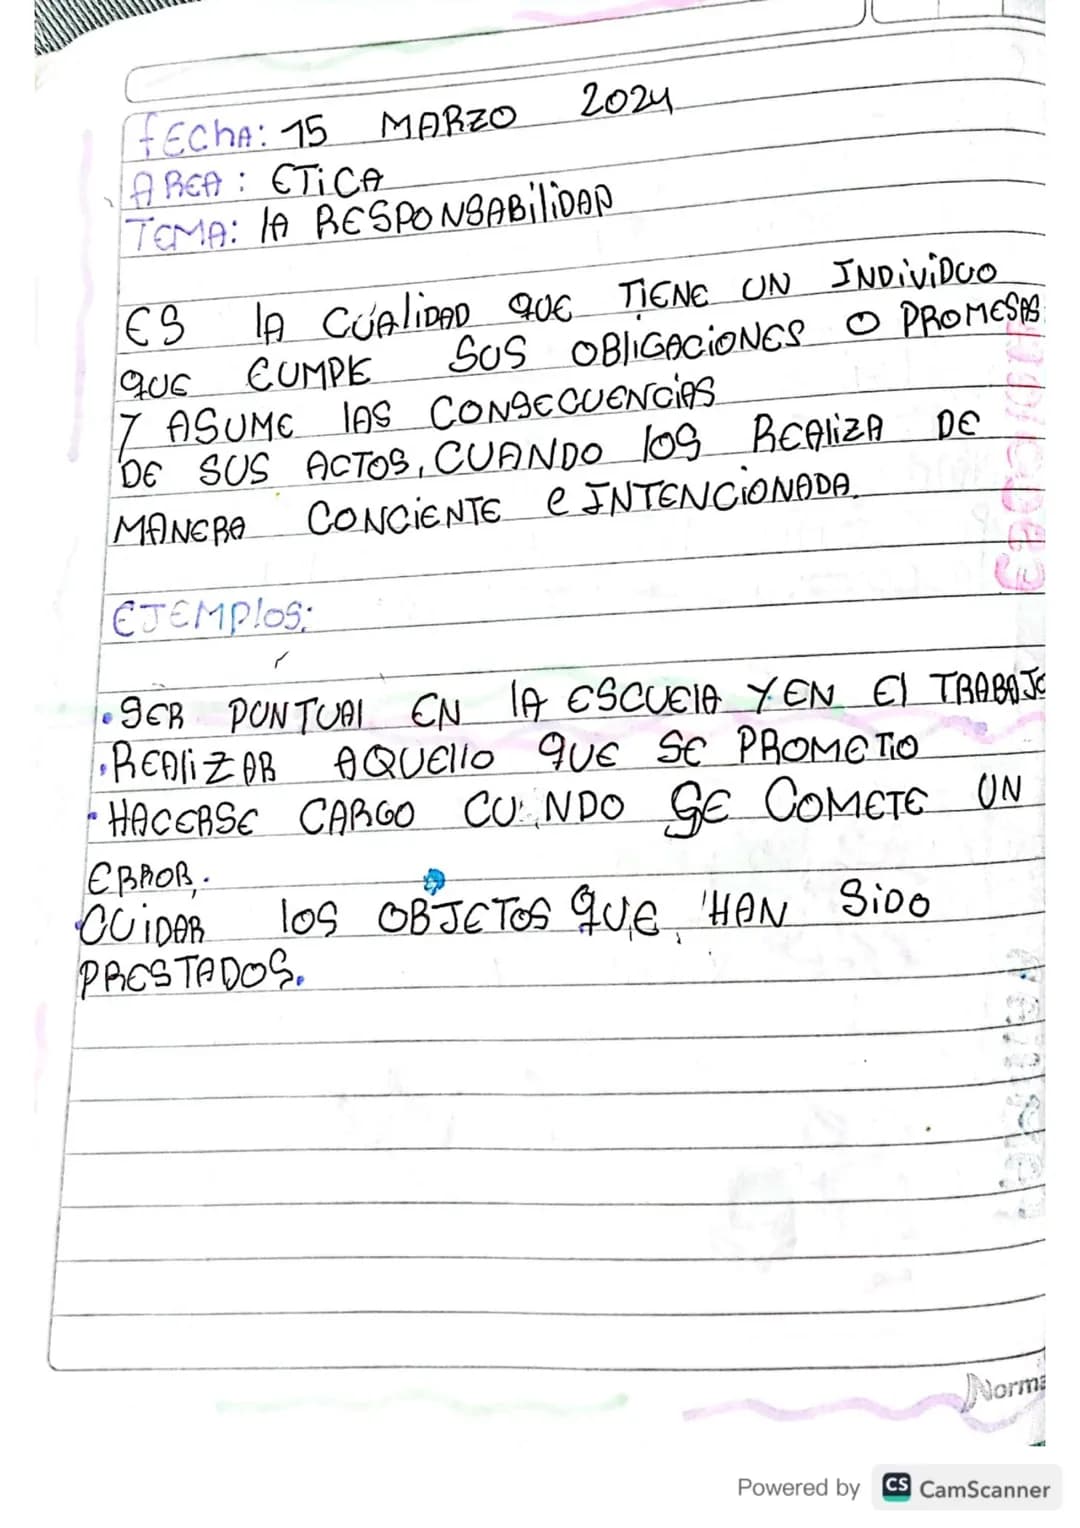 fECHA: 15 MARZO 2024
AREA: ETiCA
TEMA: lA RESPONSABiliDAD
ES lA CUAliDAD QUE TIENE UN INDiViDUO
QUE CUMPE SUS OBliGACiONES O PROMESAS
Y ASUME lAS CONSECUENCiAS
DE SUS ACTOS, CUANDO lOS REAliZA DE
MANERA CONCiENTE e INTENCiONADA.
EJEMPlOS:
• SER PONTUAl EN lA ESCUElA Y EN El TRABAJO
• REAliZAR AQUEllO QUE SE PROMETIO
• HACERSE CARGO CUANDO SE COMETE UN
ERROR.
• CUiDAR lOS OBJETOS QUE HAN SiDO
PRESTADOS.
Norma
Powered by CS CamScanner